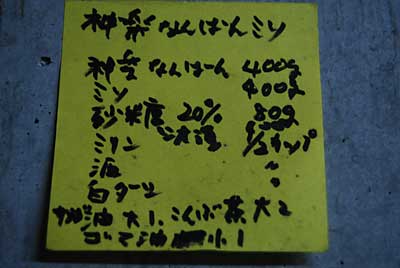 神楽なんばんミソ
神楽なんばん 400g
ミソ 400g
砂糖 20% 80g
ミリン 1/2カップ
酒 〃
白ダシ 〃
大1、こんぶ茶大2
ゴマ油 小1